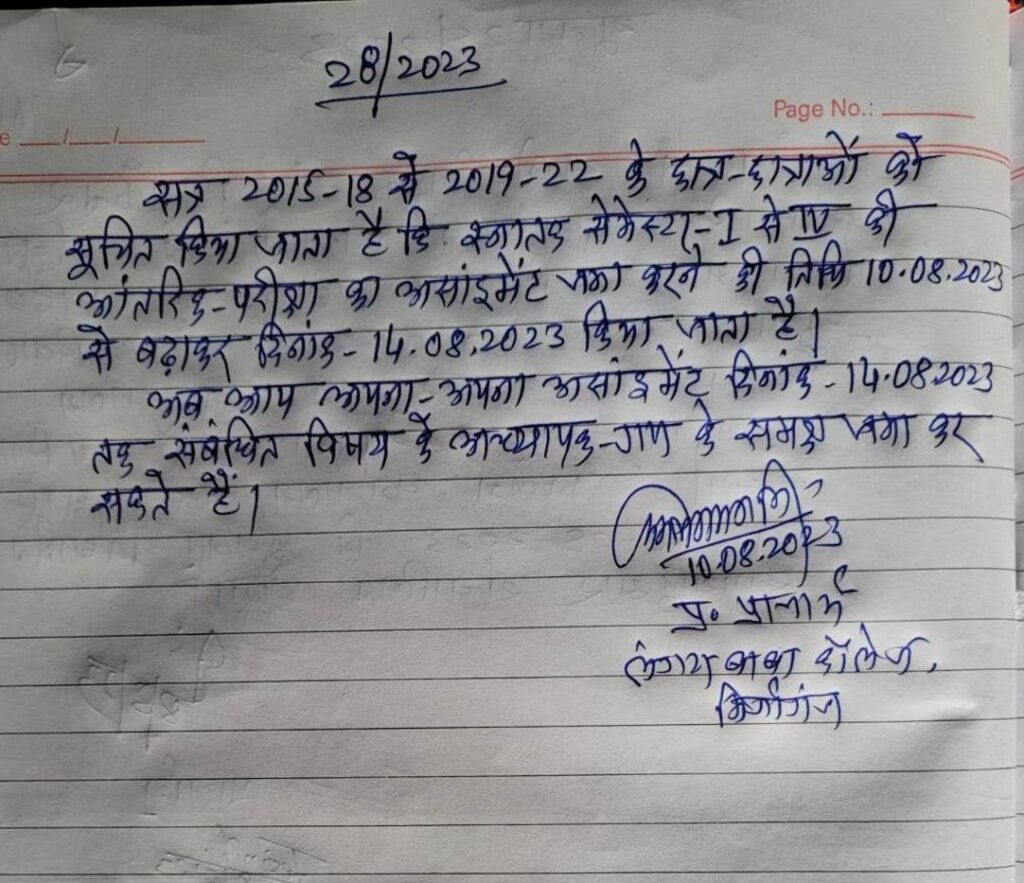 28/2023
Page No.:
सत्र 2015-18 से 2019-22 के छात्र-छात्राओं को
सूचित किया जाता है कि स्नातक सेमेस्टर-I से IV की
आंतरिक-परीक्षा का असांइमेंट जमा करने की तिथि 10.08.2023
से बढ़ाकर दिनांक-14.08.2023 किया जाता है।
अब आप अपना-अपना असांइमेंट दिनांक-14.08.2023
तक संबंधित विषय के अध्यापक-गण के समक्ष जमा कर
सकते हैं।
10.08.2023
प्र० प्राचार्य
लंगटा बाबा कॉलेज,
मिर्जागंज